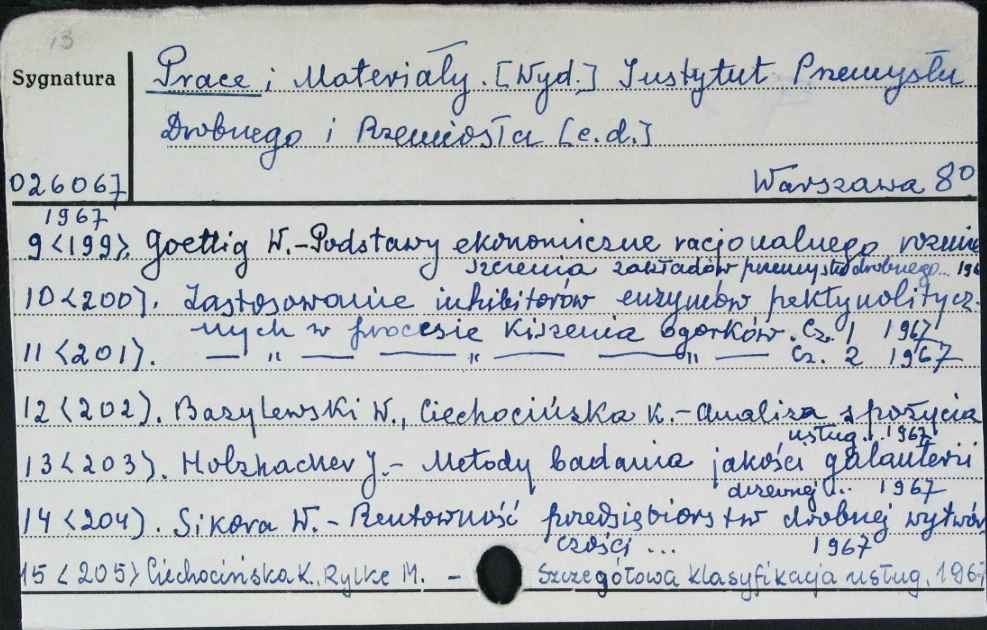 13
Sygnatura
Prace i Materiały. [Wyd.] Instytut Przemysłu
Drobnego i Rzemiosła [e.d.]
026067
Warszawa 8º
1967
9 <199>. Goettig W. - Podstawy ekonomiczne racjonalnego rozmie
szczenia zakładów przemysłu drobnego... 196
10 <200>. Zastosowanie inhibitorów enzymów pektynolitycz-
nych w procesie kiszenia ogórków. Cz. 1 1967
11 <201>. — " — — " — — " — Cz. 2 1967
12 <202>. Bazylewski W., Ciechocińska K. - Analiza spożycia
usług... 1967
13 <203>. Holzhacker J. - Metody badania jakości galanterii
drzewnej... 1967
14 <204>. Sikora W. - Rentowność przedsiębiorstw drobnej wytwór
czości ... 1967
15 <205> Ciechocińska K., Rylke M. - Szczegółowa klasyfikacja usług. 1967